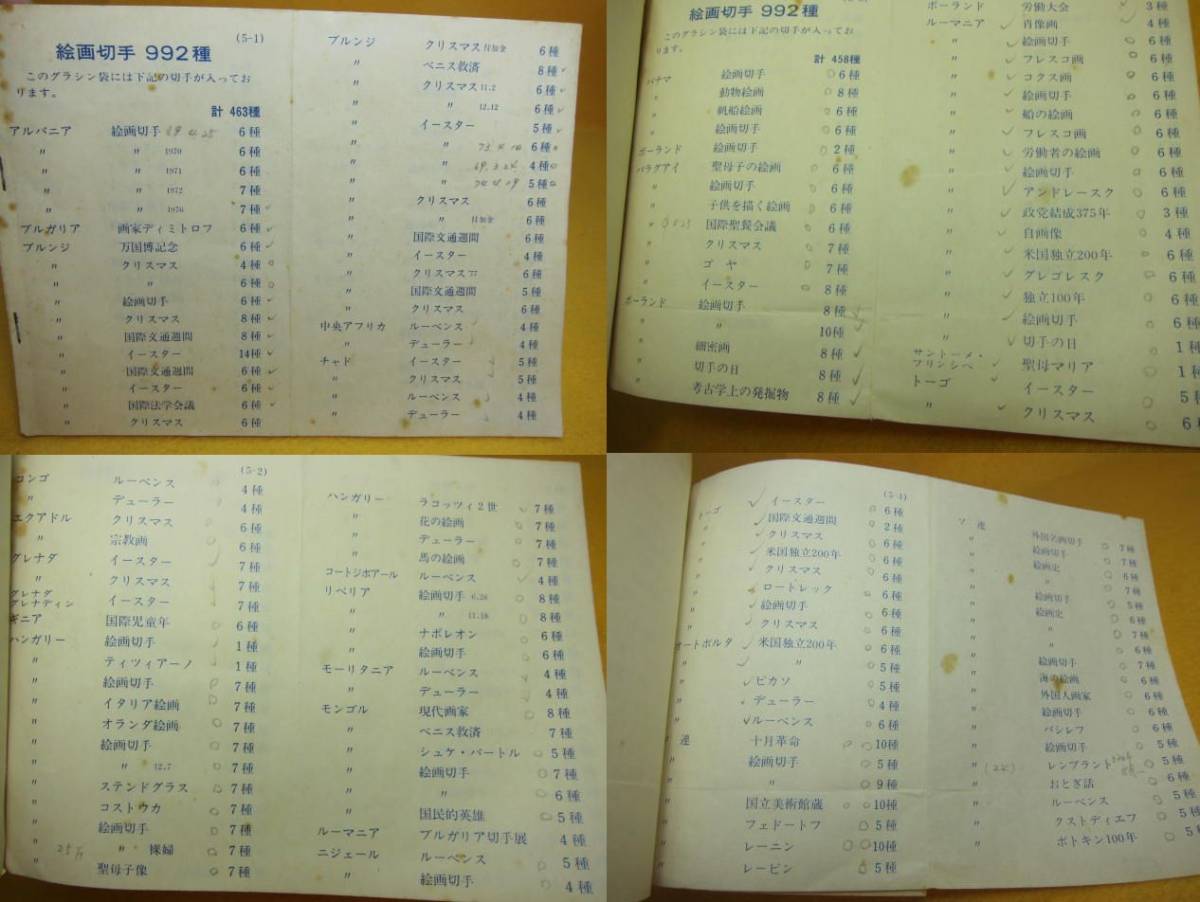 (5-1)
絵画切手 992種
このグラシン袋には下記の切手が入ってお
ります。
計 463種
アルバニア 絵画切手 69 4.25 6種
〃 〃 1970 6種
〃 〃 1971 6種
〃 〃 1972 7種
〃 〃 1976 7種
ブルガリア 画家ディミトロフ 6種
ブルンジ 万国博記念 6種
〃 クリスマス 4種
〃 〃 6種
〃 絵画切手 6種
〃 クリスマス 8種
〃 国際文通週間 8種
〃 イースター 14種
〃 国際文通週間 6種
〃 イースター 6種
〃 国際法学会議 6種
〃 クリスマス 6種
ブルンジ クリスマス 付加金 6種
〃 ベニス救済 8種
〃 クリスマス 11.2 6種
〃 〃 12.12 6種
〃 イースター 5種
〃 6種
〃 4種
〃 5種
〃 クリスマス 6種
〃 〃 付加金 6種
〃 国際文通週間 6種
〃 イースター 4種
〃 クリスマス 77 6種
〃 国際文通週間 5種
〃 クリスマス 6種
中央アフリカ ルーベンス 4種
〃 デューラー 4種
チャド イースター 5種
〃 クリスマス 5種
〃 ルーベンス 4種
〃 デューラー 4種
絵画切手 992種
このグラシン袋には下記の切手が入ってお
ります。
計 458種
パナマ 絵画切手 6種
〃 動物絵画 8種
〃 帆船絵画 6種
〃 絵画切手 6種
ポーランド 絵画切手 2種
パラグアイ 聖母子の絵画 6種
〃 絵画切手 6種
〃 子供を描く絵画 6種
〃 国際聖餐会議 6種
〃 クリスマス 7種
〃 ゴヤ 7種
〃 イースター 8種
ポーランド 絵画切手 8種
〃 〃 10種
〃 細密画 8種
〃 切手の日 8種
〃 考古学上の発掘物 8種
ポーランド 労働大会 3種
ルーマニア 肖像画 4種
〃 絵画切手 6種
〃 フレスコ画 6種
〃 コクス画 6種
〃 絵画切手 6種
〃 船の絵画 6種
〃 フレスコ画 6種
〃 労働者の絵画 6種
〃 絵画切手 6種
〃 アンドレースク 6種
〃 政党結成375年 3種
〃 自画像 4種
〃 米国独立200年 6種
〃 グレゴレスク 6種
〃 独立100年 6種
〃 絵画切手 6種
〃 切手の日 1種
サントーメ・
プリンシペ 聖母マリア 1種
トーゴ イースター 5種
〃 クリスマス 6種
(5-2)
コンゴ ルーベンス 4種
〃 デューラー 4種
エクアドル クリスマス 6種
〃 宗教画 6種
グレナダ イースター 7種
〃 クリスマス 7種
グレナダ
グレナディン イースター 7種
ギニア 国際児童年 6種
ハンガリー 絵画切手 1種
〃 ティツィアーノ 1種
〃 絵画切手 7種
〃 イタリア絵画 7種
〃 オランダ絵画 7種
〃 絵画切手 7種
〃 〃 12.7 7種
〃 ステンドグラス 7種
〃 コストウカ 7種
〃 絵画切手 7種
〃 〃 裸婦 7種
〃 聖母子像 7種
ハンガリー ラコッツィ2世 7種
〃 花の絵画 7種
〃 デューラー 7種
〃 馬の絵画 7種
コートジボアール ルーベンス 4種
リベリア 絵画切手 6.26 8種
〃 〃 11.18 8種
〃 ナポレオン 6種
〃 絵画切手 6種
モーリタニア ルーベンス 4種
〃 デューラー 4種
モンゴル 現代画家 8種
〃 ベニス救済 7種
〃 シュケ・バートル 5種
〃 絵画切手 7種
〃 〃 6種
〃 国民的英雄 5種
ルーマニア ブルガリア切手展 4種
ニジェール ルーベンス 5種
〃 絵画切手 4種
(5-4)
トーゴ イースター 6種
〃 国際文通週間 2種
〃 クリスマス 6種
〃 米国独立200年 6種
〃 クリスマス 6種
〃 ロートレック 6種
〃 絵画切手 6種
〃 クリスマス 6種
オートボルタ 米国独立200年 6種
〃 〃 5種
〃 ピカソ 5種
〃 デューラー 4種
〃 ルーベンス 6種
連 十月革命 10種
〃 絵画切手 5種
〃 〃 9種
〃 国立美術館蔵 10種
〃 フェドートフ 5種
〃 レーニン 10種
〃 レーピン 5種
ソ連 外国名画切手 7種
〃 絵画切手 7種
〃 絵画史 6種
〃 7種
〃 絵画切手 5種
〃 絵画史 6種
〃 7種
〃 6種
〃 絵画切手 7種
〃 海の絵画 5種
〃 外国人画家 6種
〃 絵画切手 6種
〃 バシレフ 6種
〃 絵画切手 5種
〃 レンブラント 5種
〃 おとぎ話 6種
〃 ルーベンス 5種
〃 クストディエフ 5種
〃 ボトキン100年 5種